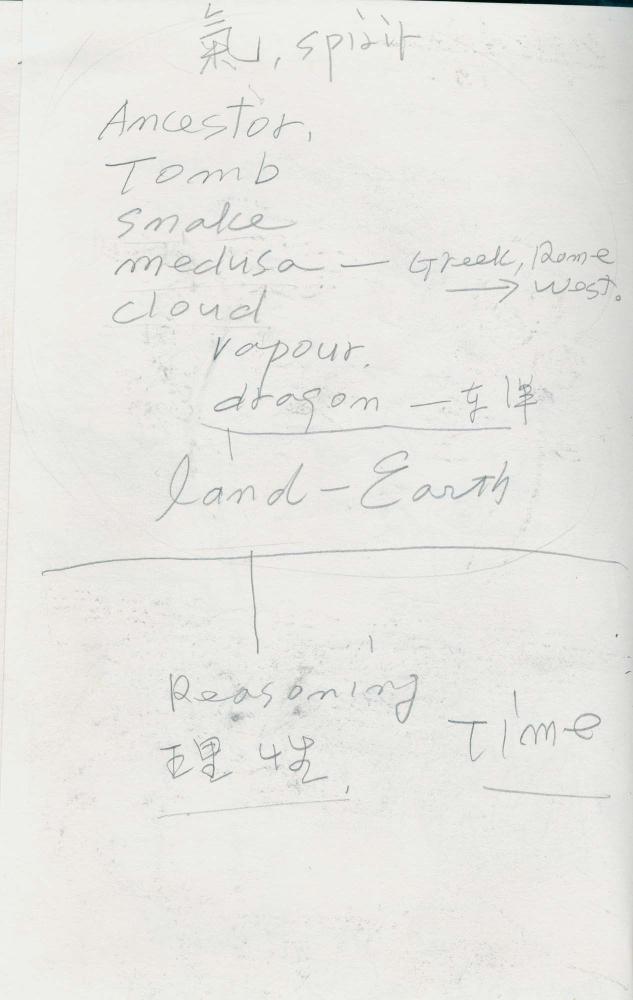 氣, spirit
Ancestor,
Tomb
snake
medusa — Greek, Rome
→ West.
cloud
vapour.
dragon — 东洋
land - Earth
Reasoning
理性.
Time